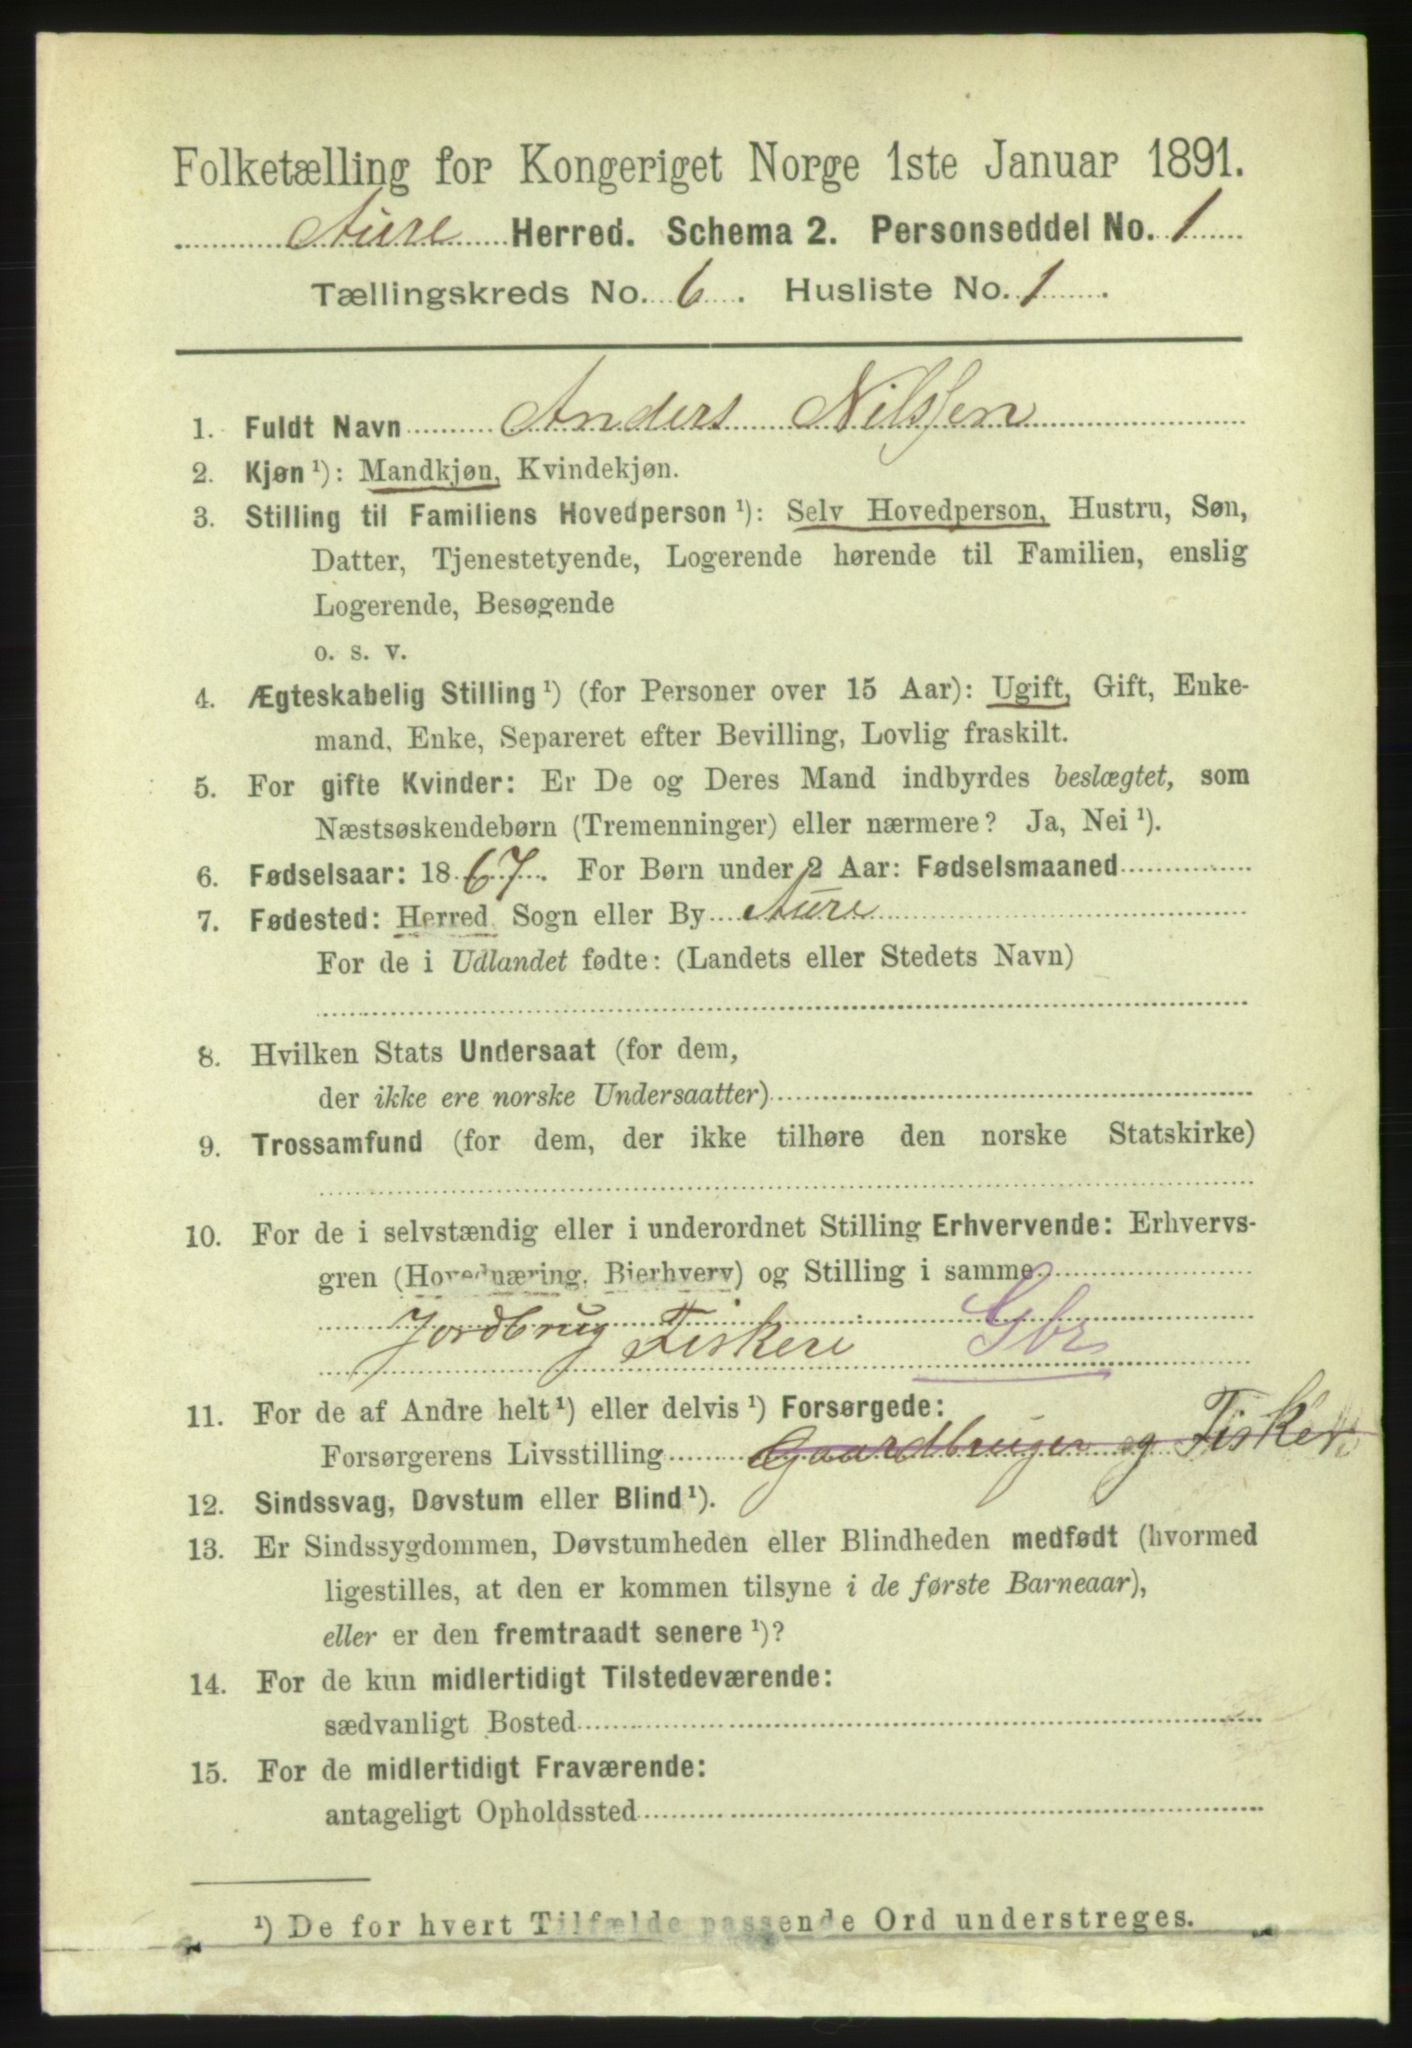 Folketælling for Kongeriget Norge 1ste Januar 1891.
Aure Herred. Schema 2. Personseddel No. 1
Tællingskreds No. 6. Husliste No. 1.
1. Fuldt Navn Anders Nilssen
2. Kjøn¹): Mandkjøn, Kvindekjøn.
3. Stilling til Familiens Hovedperson¹): Selv Hovedperson, Hustru, Søn,
Datter, Tjenestetyende, Logerende hørende til Familien, enslig
Logerende, Besøgende
o. s. v.
4. Ægteskabelig Stilling¹) (for Personer over 15 Aar): Ugift, Gift, Enke-
mand, Enke, Separeret efter Bevilling, Lovlig fraskilt.
5. For gifte Kvinder: Er De og Deres Mand indbyrdes beslægtet, som
Næstsøskendebørn (Tremenninger) eller nærmere? Ja, Nei¹).
6. Fødselsaar: 1867. For Børn under 2 Aar: Fødselsmaaned
7. Fødested: Herred, Sogn eller By Aure
For de i Udlandet fødte: (Landets eller Stedets Navn)
8. Hvilken Stats Undersaat (for dem,
der ikke ere norske Undersaatter)
9. Trossamfund (for dem, der ikke tilhøre den norske Statskirke)
10. For de i selvstændig eller i underordnet Stilling Erhvervende: Erhvervs-
gren (Hovednæring, Bierhverv) og Stilling i samme
Jordbrug Fiskeri Gbr
11. For de af Andre helt¹) eller delvis¹) Forsørgede:
Forsørgerens Livsstilling Gaardbruger og Fisker
12. Sindssvag, Døvstum eller Blind¹).
13. Er Sindssygdommen, Døvstumheden eller Blindheden medfødt (hvormed
ligestilles, at den er kommen tilsyne i de første Barneaar),
eller er den fremtraadt senere¹)?
14. For de kun midlertidigt Tilstedeværende:
sædvanligt Bosted
15. For de midlertidigt Fraværende:
antageligt Opholdssted
¹) De for hvert Tilfælde passende Ord understreges.